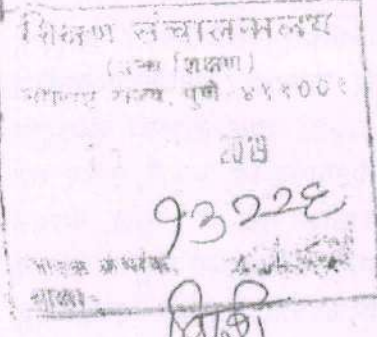 शिक्षण संचालनालय
(उच्च शिक्षण)
राज्य, पुणे ४११००१
2019
१३२२६
आवक क्रमांक
शाखा-
विशि